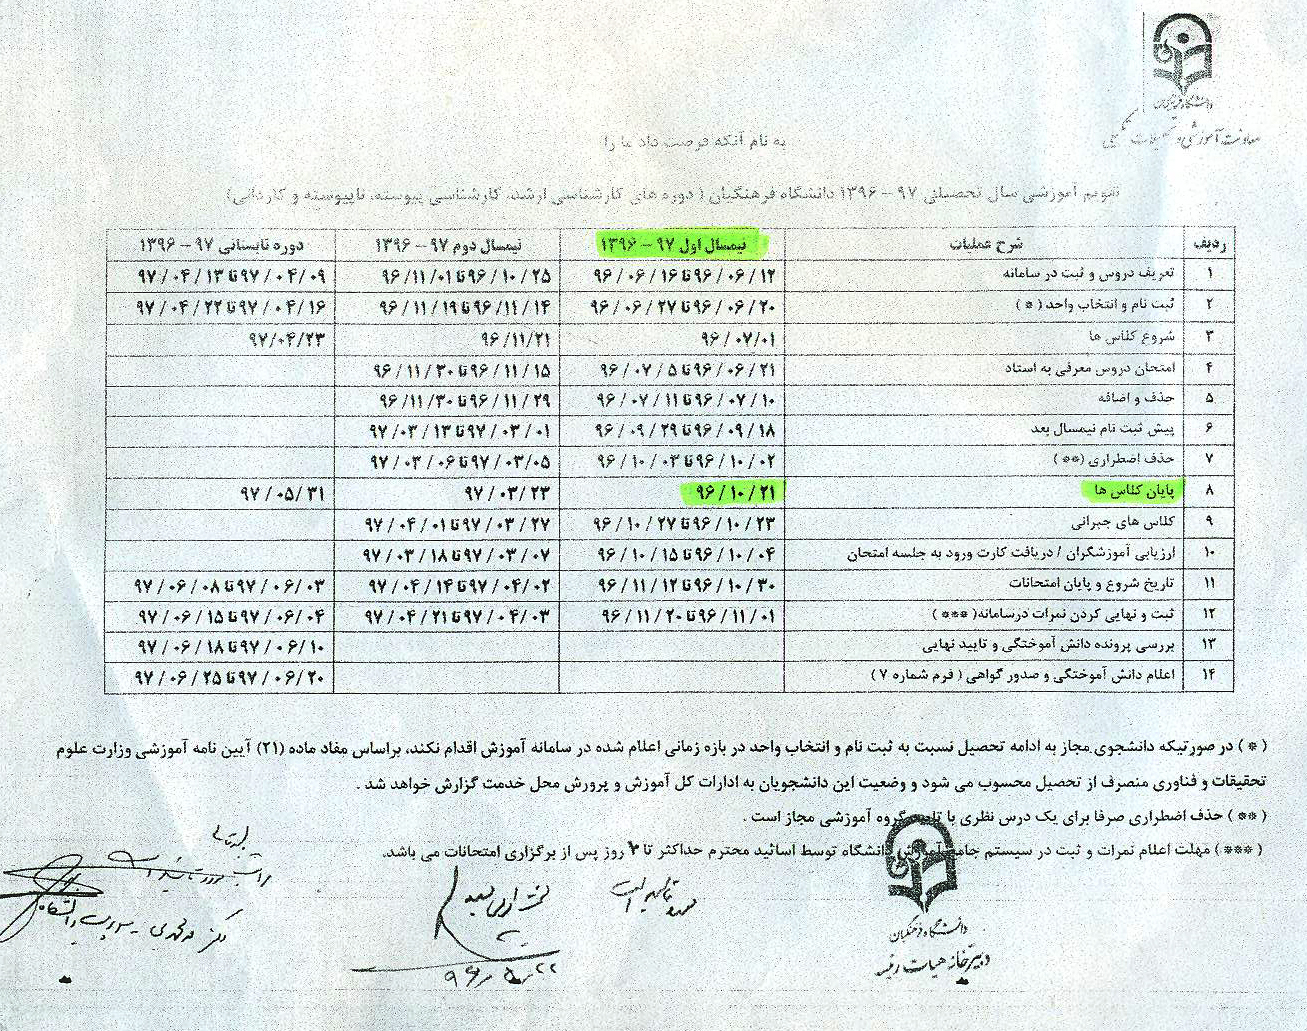 دانشگاه فرهنگیان
معاونت آموزشی و تحصیلات تکمیلی
به نام آنکه فرصت داد ما را
تقویم آموزشی سال تحصیلی ۹۷ – ۱۳۹۶ دانشگاه فرهنگیان ( دوره های کارشناسی ارشد، کارشناسی پیوسته، ناپیوسته و کاردانی)
ردیف شرح عملیات نیمسال اول ۹۷ – ۱۳۹۶ نیمسال دوم ۹۷ – ۱۳۹۶ دوره تابستانی ۹۷ – ۱۳۹۶
۱ تعریف دروس و ثبت در سامانه ۹۶/۰۶/۱۲ تا ۹۶/۰۶/۱۶ ۹۶/۱۰/۲۵ تا ۹۶/۱۱/۰۱ ۹۷/۰۴/۰۹ تا ۹۷/۰۴/۱۳
۲ ثبت نام و انتخاب واحد ( * ) ۹۶/۰۶/۲۰ تا ۹۶/۰۶/۲۷ ۹۶/۱۱/۱۴ تا ۹۶/۱۱/۱۹ ۹۷/۰۴/۱۶ تا ۹۷/۰۴/۲۲
۳ شروع کلاس ها ۹۶/۰۷/۰۱ ۹۶/۱۱/۲۱ ۹۷/۰۴/۲۳
۴ امتحان دروس معرفی به استاد ۹۶/۰۶/۲۱ تا ۹۶/۰۷/۵ ۹۶/۱۱/۱۵ تا ۹۶/۱۱/۳۰
۵ حذف و اضافه ۹۶/۰۷/۱۰ تا ۹۶/۰۷/۱۱ ۹۶/۱۱/۲۹ تا ۹۶/۱۱/۳۰
۶ پیش ثبت نام نیمسال بعد ۹۶/۰۹/۱۸ تا ۹۶/۰۹/۲۹ ۹۷/۰۳/۰۱ تا ۹۷/۰۳/۱۳
۷ حذف اضطراری (**) ۹۶/۱۰/۰۲ تا ۹۶/۱۰/۰۳ ۹۷/۰۳/۰۵ تا ۹۷/۰۳/۰۶
۸ پایان کلاس ها ۹۶/۱۰/۲۱ ۹۷/۰۳/۲۳ ۹۷/۰۵/۳۱
۹ کلاس های جبرانی ۹۶/۱۰/۲۳ تا ۹۶/۱۰/۲۷ ۹۷/۰۳/۲۷ تا ۹۷/۰۴/۰۱
۱۰ ارزیابی آموزشگران / دریافت کارت ورود به جلسه امتحان ۹۶/۱۰/۰۴ تا ۹۶/۱۰/۱۵ ۹۷/۰۳/۰۷ تا ۹۷/۰۳/۱۸
۱۱ تاریخ شروع و پایان امتحانات ۹۶/۱۰/۳۰ تا ۹۶/۱۱/۱۲ ۹۷/۰۴/۰۲ تا ۹۷/۰۴/۱۴ ۹۷/۰۶/۰۳ تا ۹۷/۰۶/۰۸
۱۲ ثبت و نهایی کردن نمرات درسامانه( *** ) ۹۶/۱۱/۰۱ تا ۹۶/۱۱/۲۰ ۹۷/۰۴/۰۳ تا ۹۷/۰۴/۲۱ ۹۷/۰۶/۰۴ تا ۹۷/۰۶/۱۵
۱۳ بررسی پرونده دانش آموختگی و تایید نهایی ۹۷/۰۶/۱۰ تا ۹۷/۰۶/۱۸
۱۴ اعلام دانش آموختگی و صدور گواهی ( فرم شماره ۷ ) ۹۷/۰۶/۲۰ تا ۹۷/۰۶/۲۵
( * ) در صورتیکه دانشجوی مجاز به ادامه تحصیل نسبت به ثبت نام و انتخاب واحد در بازه زمانی اعلام شده در سامانه آموزش اقدام نکند، براساس مفاد ماده (۲۱) آیین نامه آموزشی وزارت علوم
تحقیقات و فناوری منصرف از تحصیل محسوب می شود و وضعیت این دانشجویان به ادارات کل آموزش و پرورش محل خدمت گزارش خواهد شد .
( ** ) حذف اضطراری صرفا برای یک درس نظری با تایید گروه آموزشی مجاز است .
( *** ) مهلت اعلام نمرات و ثبت در سیستم جامع آموزش دانشگاه توسط اساتید محترم حداکثر تا روز پس از برگزاری امتحانات می باشد.
دانشگاه فرهنگیان
دبیرخانه هیات رئیسه